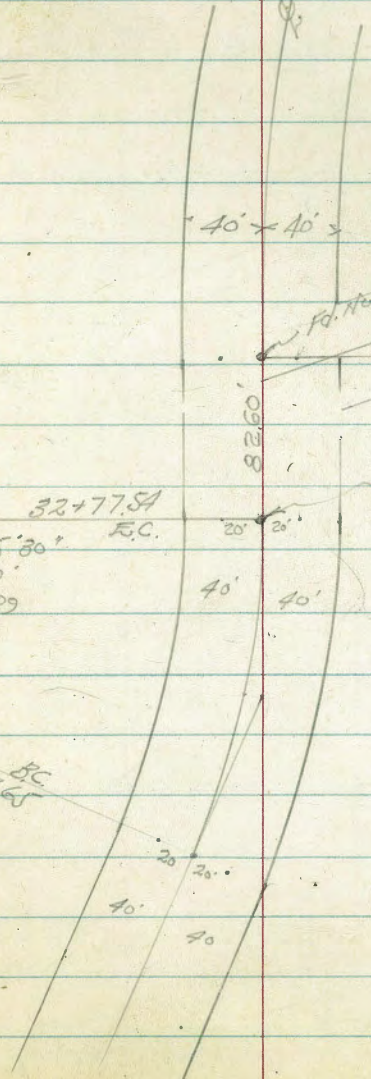 40' 40'
Fd.
82.60'
32+77.54
E.C.
20' 20'
5'30"
40' 40'
B.C.
65
20 20
40'
40